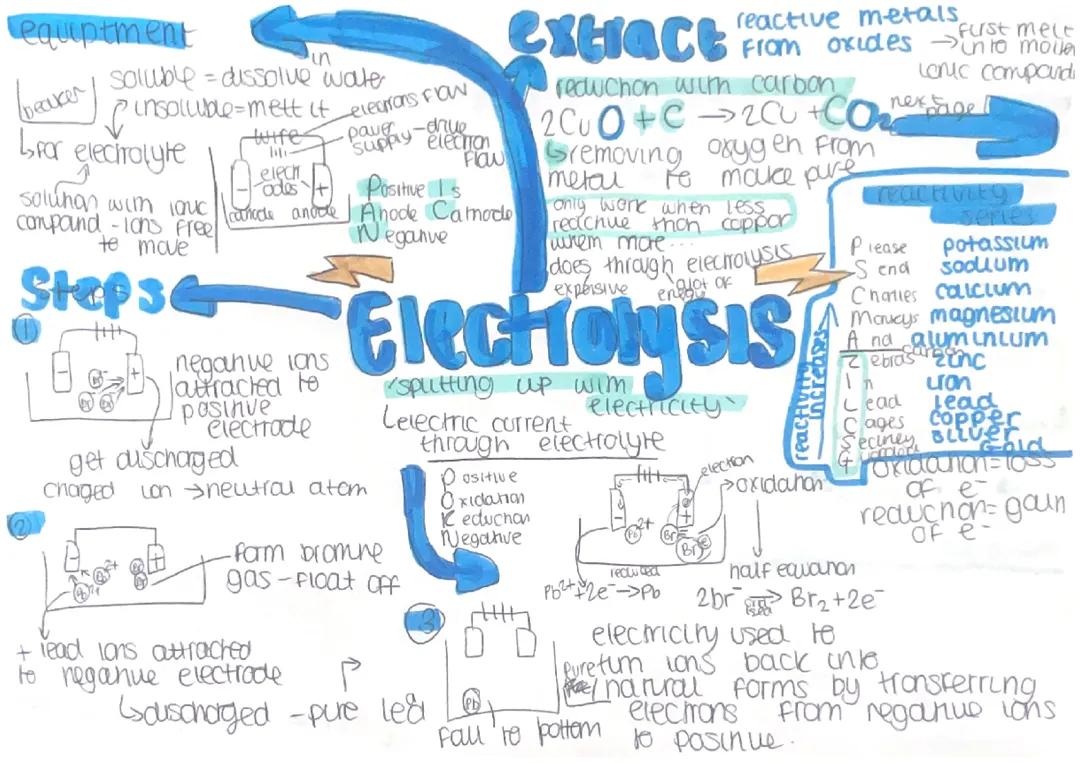 equiptment
in
soluble = dissolve water
insoluble = melt it
beaker
↳ for electrolyte
solution with ionic
compound - ions free
to move
wire
electrons flow
power
supply - drive
electron
flow
elect
odes
- +
cathode anode
Positive Is
Anode Cathode
Negative
extract
reactive metals
from oxides → first melt
into molten
ionic compound
reduction with carbon
2CuO + C → 2Cu + CO₂
next
page
↳ removing oxygen from
metal to make pure
only work when less
reactive than copper
when more...
does through electrolysis
expensive
alot of
energy
reactivity
series
Please potassium
Send sodium
Charlies calcium
Monkeys magnesium
And aluminium
carbon
Zebras zinc
In iron
Lead lead
Cages copper
silver
gold
reactivity
increases
oxidation = loss
of e⁻
reduction = gain
of e⁻
Electrolysis
'splitting up with
electricity'
↳ electric current
through electrolyte
Stepps
①
- +
Br⁻
negative ions
attracted to
positive
electrode
get discharged
chaged ion → neutral atom
②
- +
form bromine
gas - float off
+ lead ions attracted
to negative electrode
↳ discharged - pure led
Positive
Oxidation
Reduction
Negative
electron
- +
Pb²⁺ Br
→ oxidation
reduced
Pb²⁺ + 2e⁻ → Pb
half equation
2br⁻ → Br₂ + 2e⁻
③
Pb
fall to bottom
electricity used to
turn ions back into
pure / natural forms by transferring
electrons from negative ions
to positive.